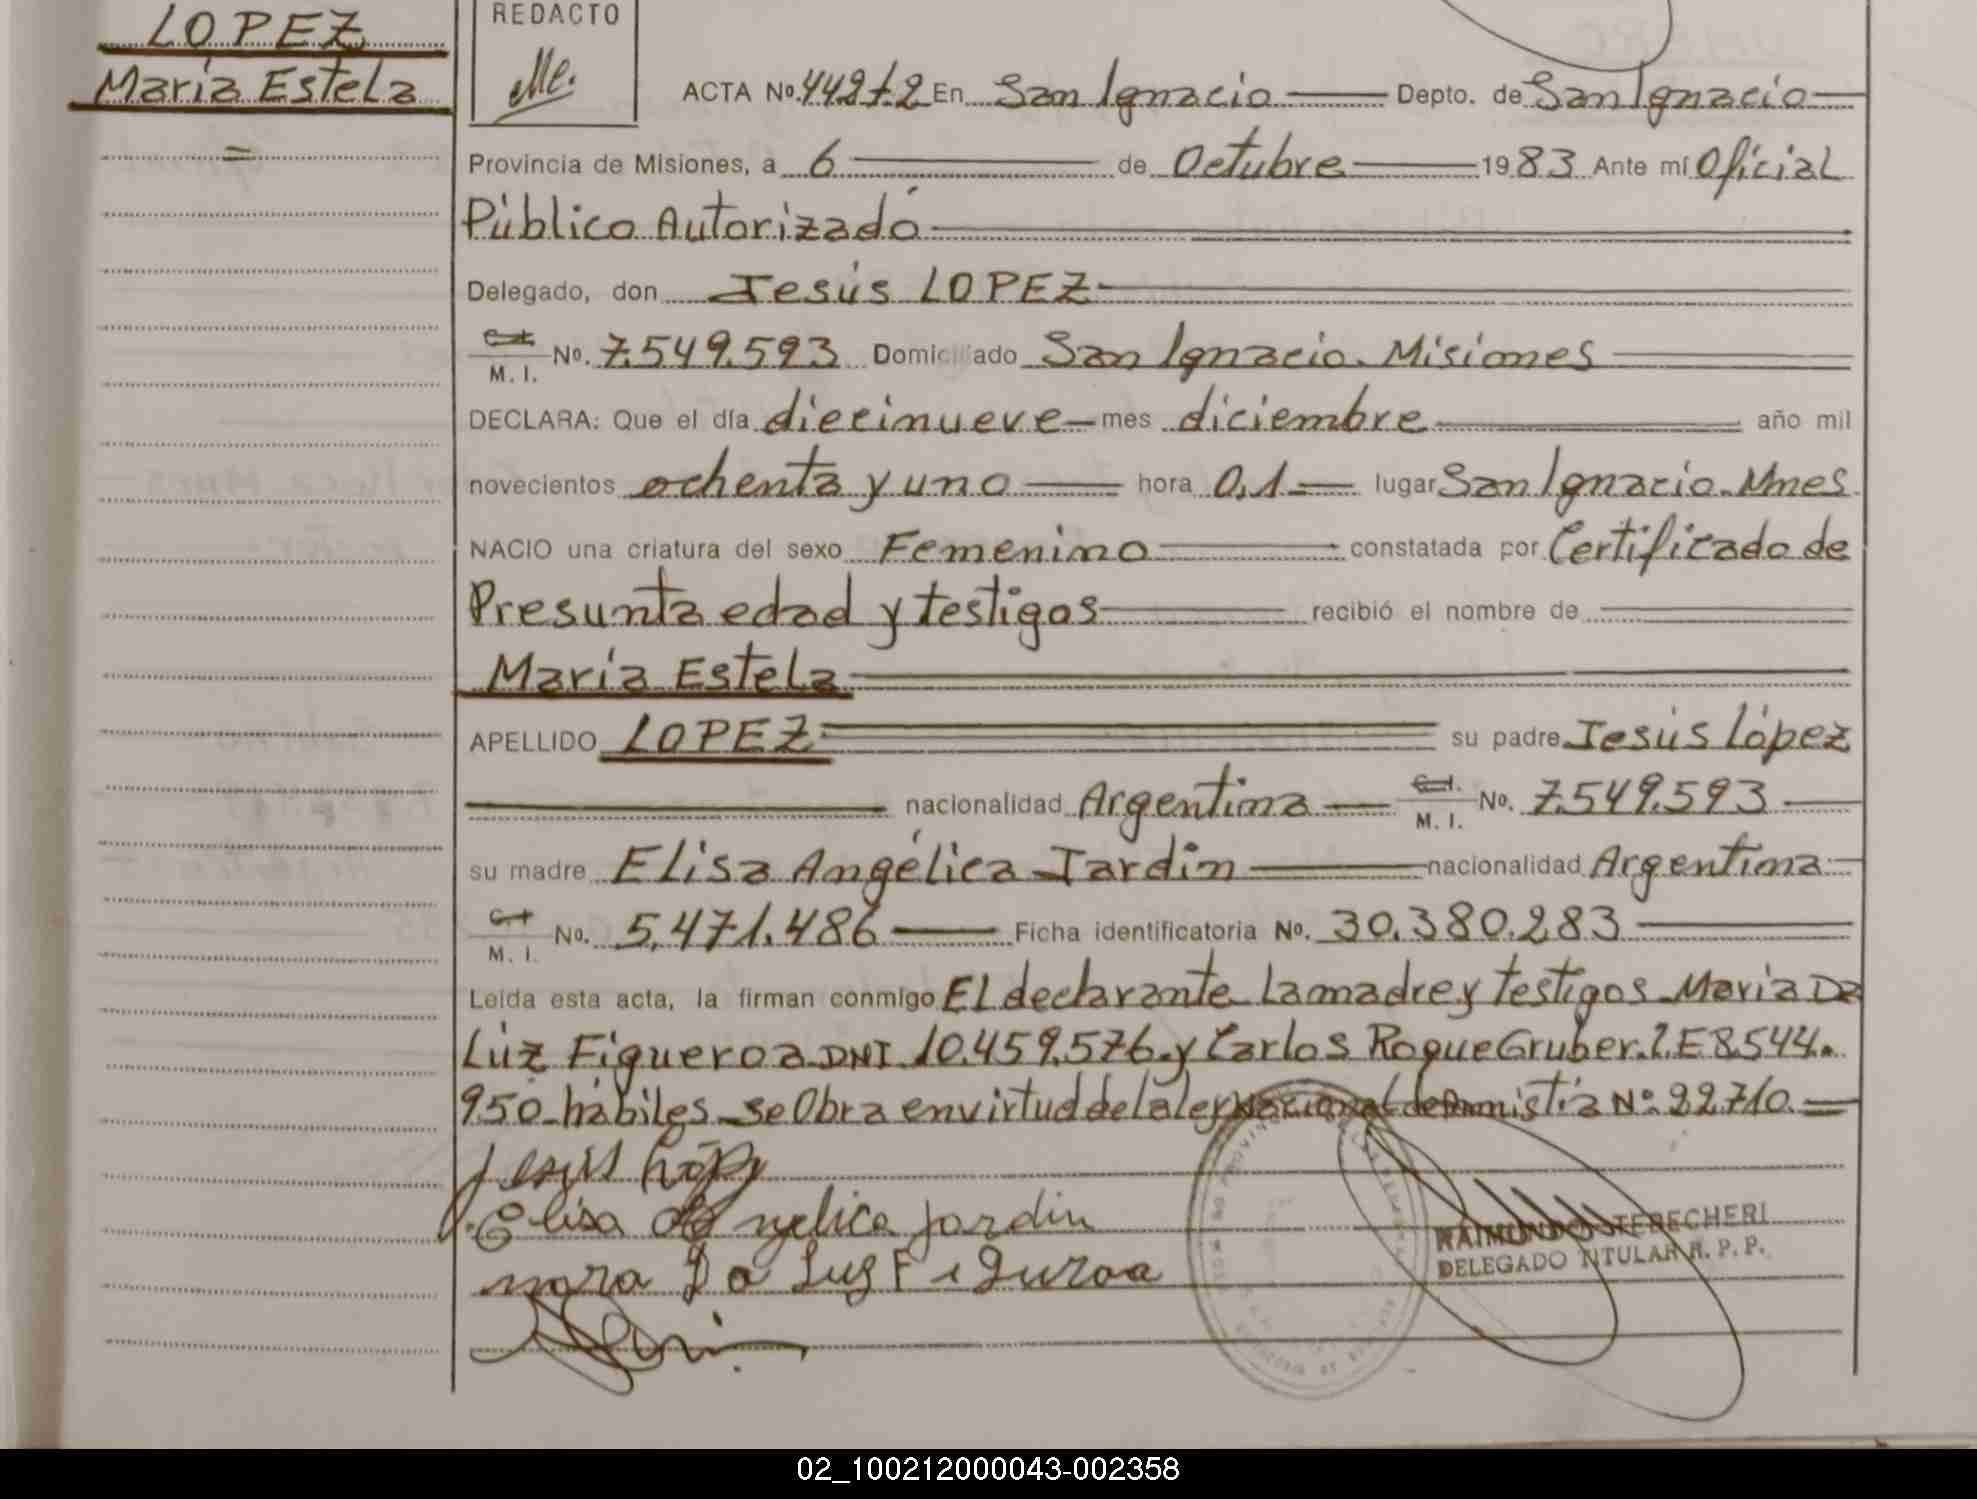 LOPEZ
María Estela
=
REDACTO
ACTA Nº. 442 t.2 En San Ignacio Depto. de San Ignacio
Provincia de Misiones, a 6 de Octubre 1983 Ante mí Oficial
Público Autorizado
Delegado, don Jesús LOPEZ
C.I.
M. I. No. 7.549.593 Domiciliado San Ignacio. Misiones
DECLARA: Que el día diecinueve mes diciembre año mil
novecientos ochenta y uno hora 0,1 lugar San Ignacio. Mnes
NACIO una criatura del sexo Femenino constatada por Certificado de
Presunta edad y testigos recibió el nombre de
María Estela
APELLIDO LOPEZ su padre Jesús López
nacionalidad Argentina C.I. M. I. No. 7.549.593
su madre Elisa Angélica Jardin nacionalidad Argentina
C.I. M. I. No. 5.471.486 Ficha identificatoria No. 30.380.283
Leída esta acta, la firman conmigo El declarante La madre y testigos María Da
Luz Figueroa DNI 10.459.576 y Carlos Roque Gruber. L.E 8.544.
950 hábiles se Obra en virtud de la ley Nacional de Amnistía Nº 22.710.
Jesús López
Elisa Angelica Jardin
mara Da Luz Figuroa
RAIMUNDO TERECHERI
DELEGADO TITULAR R. P. P.
02_100212000043-002358